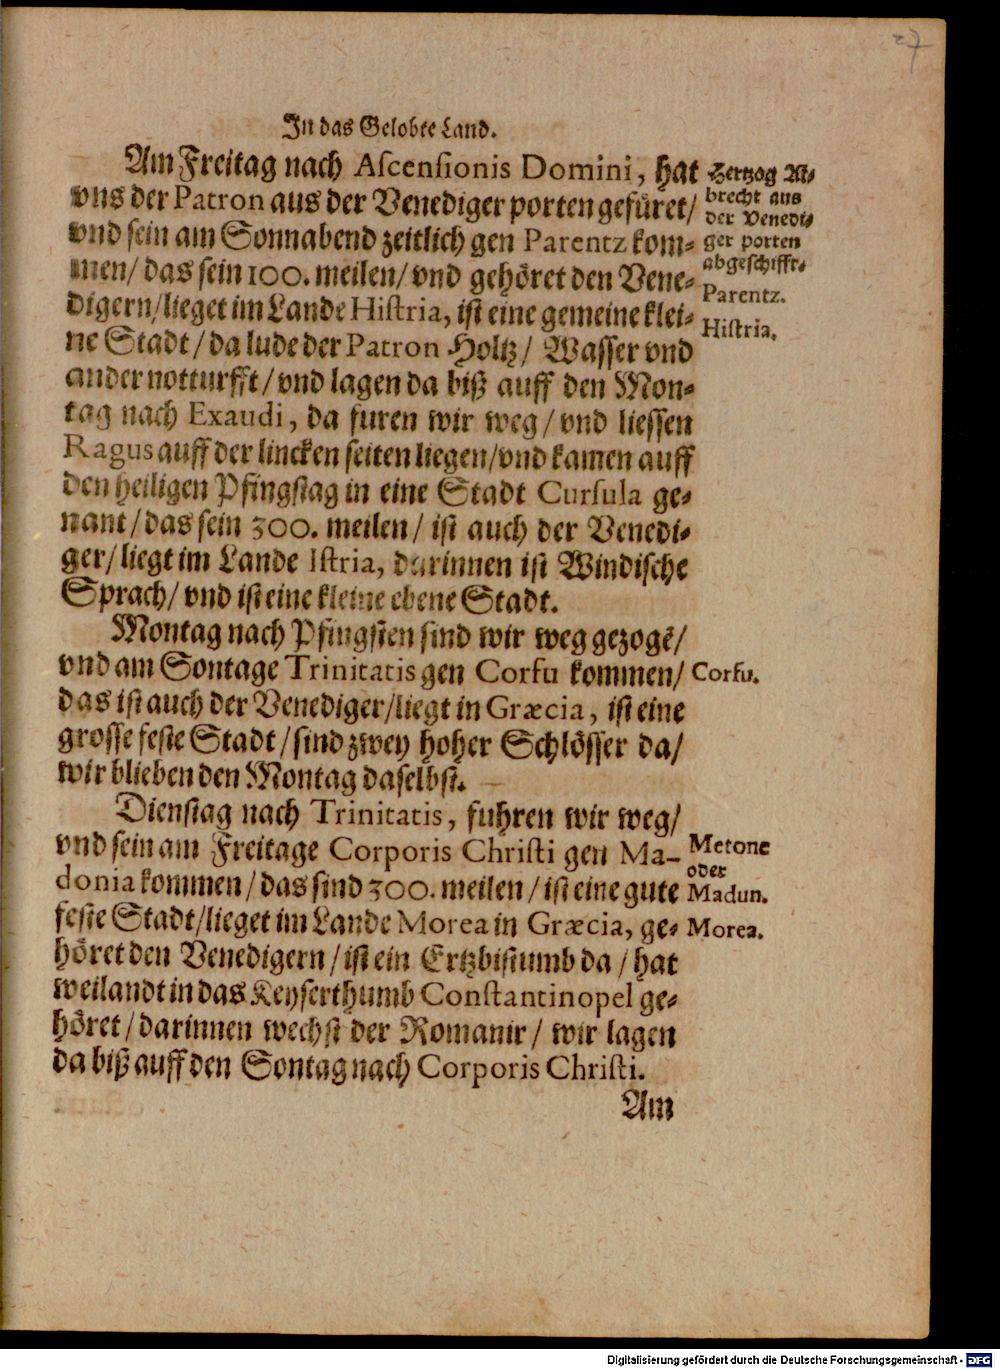 27
In das Gelobte Land.
Am Freitag nach Ascensionis Domini, hat
vns der Patron aus der Venediger porten gefüret/
vnd sein am Sonnabend zeitlich gen Parentz kom-
men/ das sein 100. meilen/ vnd gehöret den Vene-
digern/ lieget im Lande Histria, ist eine gemeine klei-
ne Stadt/ da lude der Patron Holtz/ Wasser vnd
ander notturfft/ vnd lagen da biß auff den Mon-
tag nach Exaudi, da furen wir weg/ vnd liessen
Ragus auff der lincken seiten liegen/ vnd kamen auff
den heiligen Pfingstag in eine Stadt Cursula ge-
nant/ das sein 300. meilen/ ist auch der Venedi-
ger/ liegt im Lande Istria, darinnen ist Windische
Sprach/ vnd ist eine kleine ebene Stadt.
Montag nach Pfingsten sind wir weg gezogẽ/
vnd am Sontage Trinitatis gen Corfu kommen/
das ist auch der Venediger/ liegt in Græcia, ist eine
grosse feste Stadt/ sind zwey hoher Schlösser da/
wir blieben den Montag daselbst.
Dienstag nach Trinitatis, fuhren wir weg/
vnd sein am Freitage Corporis Christi gen Ma-
donia kommen/ das sind 300. meilen/ ist eine gute
feste Stadt/ lieget im Lande Morea in Græcia, ge-
höret den Venedigern/ ist ein Ertzbistumb da/ hat
weilandt in das Keyserthumb Constantinopel ge-
höret/ darinnen wechst der Romanir/ wir lagen
da biß auff den Sontag nach Corporis Christi.
Am
Hertzog Al-
brecht aus
der Venedi-
ger porten
abgeschifft.
Parentz.
Histria.
Corfu.
Metone
oder
Madun.
Morea.
Digitalisierung gefördert durch die Deutsche Forschungsgemeinschaft - DFG